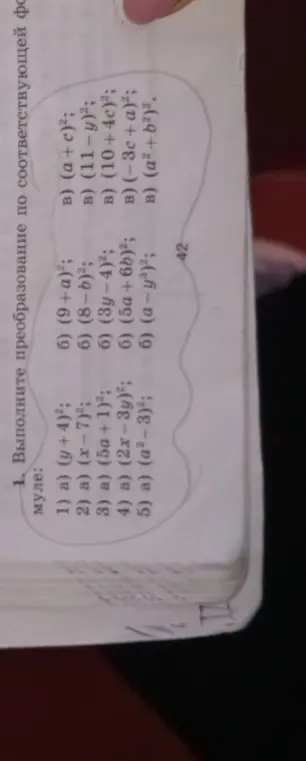 1. Выполните преобразование по соответствующей фо
муле:
1) а) (y + 4)²; б) (9 + a)²; в) (a + c)²;
2) а) (x − 7)²; б) (8 − b)²; в) (11 − y)²;
3) а) (5a + 1)²; б) (3y − 4)²; в) (10 + 4c)²;
4) а) (2x − 3y)²; б) (5a + 6b)²; в) (− 3c + a)²;
5) а) (a² − 3)²; б) (a − y³)²; в) (a² + b²)².
42